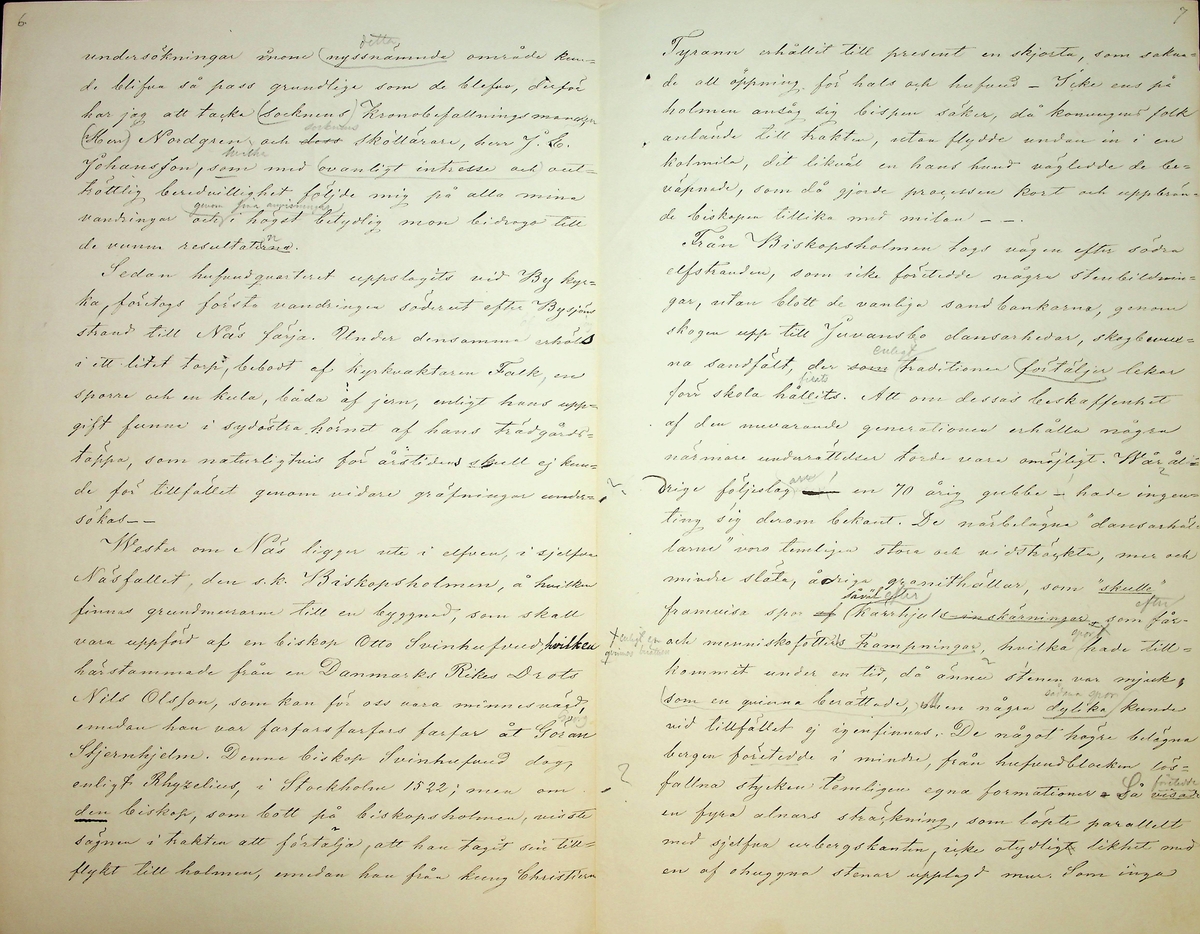 6.
detta
undersökningar inom (nyssnämnde område kun-
de blifva så pass grundliga som de blefvo, derför
har jag att tacka (socknens) Kronobefallningsmannen
(Herr) Nordgren och dess sockens skollärare, herr J. E.
Johansson, som med ovanligt intresse och out-
tröttlig beredvillighet följde mig på alla mina
vandringar och i högst betydlig mon bidrogo till
de vunna resultaterna.
Sedan hufvudqvarteret uppslagits vid By kyr-
ka, företogs första vandringen söderut efter Bysjöns
strand till Näs färja. Under densamma erhölls
i ett litet torp, bebodt af kyrkvaktaren Falk, en
sporre och en kula, båda af jern, enligt hans upp-
gift funna i sydöstra hörnet af hans trädgårds-
täppa, som naturligtvis för årstidens skull ej kun-
de för tillfället genom vidare gräfningar under-
sökas – –
Wester om Näs ligger ute i elfven, i sjelfva
Näsfallet, den s.k. Biskopsholmen, å hvilken
finnas grundmurarne till en byggnad, som skall
vara uppförd af en biskop Otto Svinhufvud, hvilken
härstammade från en Danmarks Rikes Drots
Nils Olsson, som kan för oss vara minnesvärd,
emedan han var farfarsfarfars farfar åt Göran
Stjernhjelm. Denne biskop Svinhufvud dog,
enligt Rhyzelius, i Stockholm 1522; men om
den biskop, som bott på biskopsholmen, visste
sägnen i trakten att förtälja, att han tagit sin till-
flykt till holmen, emedan han från kung Christiern
7
Tyrann erhållit till present en skjorta, som sakna-
de all öppning för hals och hufvud – Icke ens på
holmen ansåg sig bispen säker, då konungens folk
anlände till trakten, utan flydde undan in i en
kolmila, dit likväl en hans hund vägledde de be-
väpnade, som då gjorde processen kort och uppbrän-
de biskopen tillika med milan – –.
Från Biskopsholmen togs vägen efter södra
elfstranden, som icke företedde några stenbildnin-
gar, utan blott de vanliga sandbankarna, genom
skogen upp till Juvansbo dansarhedar, skogbevux-
na sandfält, der som enligt traditionen (förtäljer lekar
förr skola hållits. Att om dessas beskaffenhet
af den nuvarande generationen erhålla några
närmare underrättelser torde vara omöjligt. Wår ål-
drige följeslagare en 70 årig gubbe – hade ingen-
ting sig derom bekant. De närbelägna "dansarhäl-
larne" voro temligen stora och vidsträckta, mer och
mindre släta, ådriga granithällar, som "skulle"
såväl efter
efter
framvisa spor af (Kärrhjuls inskärningar, som får-
och menniskofötters trampningar, hvilka hade till-
kommit under en tid, då ännu stenen var mjuk,
enligt en
qvinnas berättelse
(som en qvinna berättade, Men några dylika) sådana spor kunde
vid tillfället ej igenfinnas. De något högre belägna
bergen företedde i mindre, från hufvudblocken lös-
fallna stycken temligen egna formationer. Så visade företedde
en fyra alnars sträckning, som löpte parallelt
med sjelfva urbergskanten, icke otydligt likhet med
en af ohuggna stenar upplagd mur. Som inga